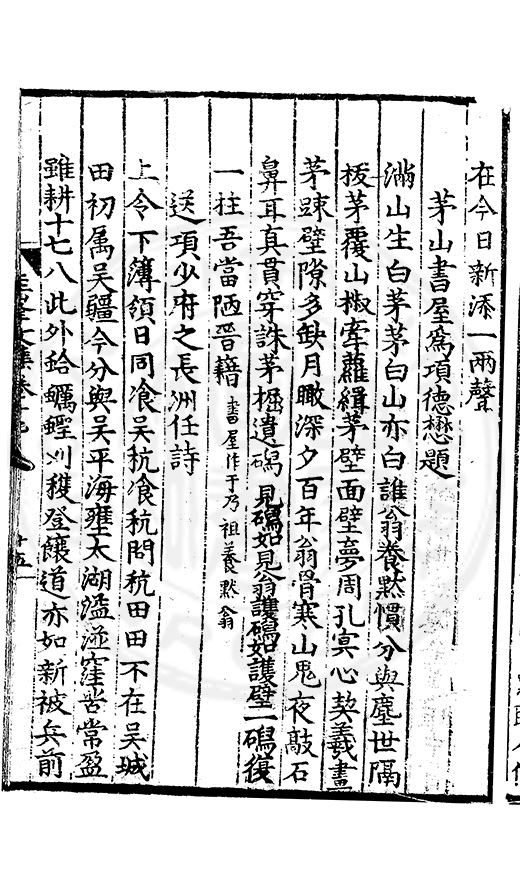 在今日新添一兩聲
茅山書屋爲項德懋題
滿山生白茅茅白山亦白誰翁養黙慣分與塵世隔
拔茅覆山椒牽蘿緝茅壁面壁夢周孔㝠心契羲畫
茅踈壁隙多缺月瞰深夕百年翁骨寒山鬼夜敲石
鼻耳真貫穿誅茅掘遺碣見碣如見翁護碣如護璧一碣復
一柱吾當陋晉籍書屋作于乃祖養黙翁
送項少府之長洲任詩
上令下簿領日同飡吴秔飡秔問秔田田不在吴城
田初属吴疆今分與吴平海壅太湖溢溢窪甞常盈
雖耕十七八此外蛤蠣蟶刈穫登饟道亦如新被兵前